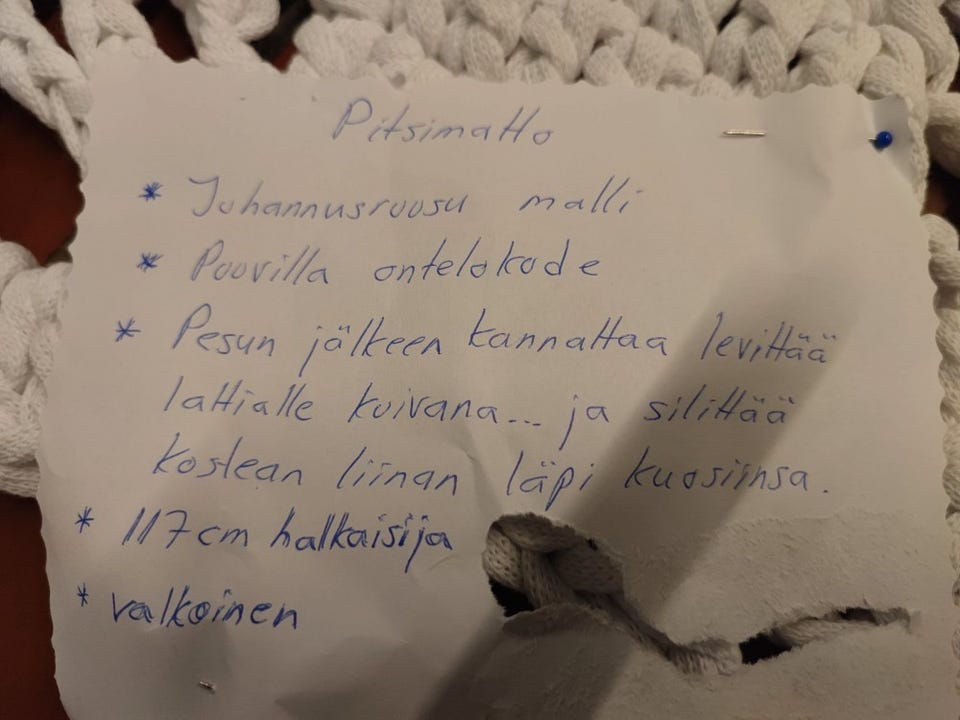 Pitsimatto
* Juhannusruusu malli
* Puuvilla ontelokude
* Pesun jälkeen kannattaa levittää
lattialle kuivana... ja silittää
kostean liinan läpi kuosiinsa.
* 117cm halkaisija
* valkoinen